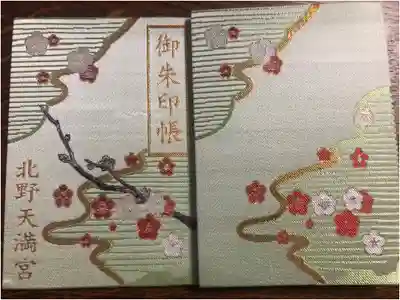 御朱印帳
北野天満宮